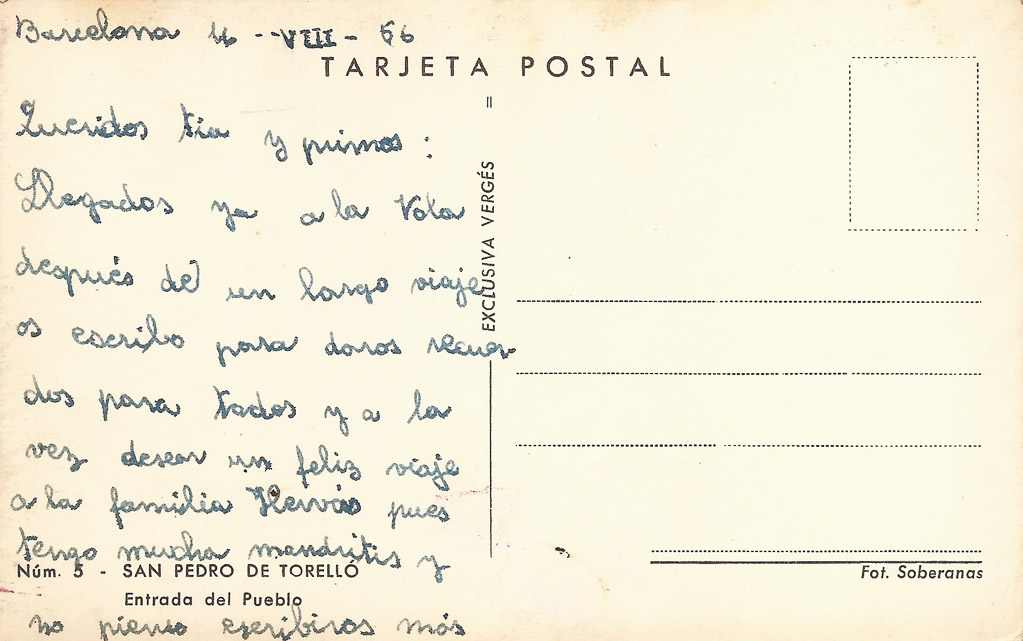 Barcelona 4 - VIII - 66
TARJETA POSTAL
Queridos tia y primos :
Llegados ya a la Vola
después de un largo viaje
os escribo para daros recuer-
dos para todos y a la
vez desear un feliz viaje
a la familia Hervás pues
tengo mucha mandritis y
no pienso escribiros más
EXCLUSIVA VERGÉS
Núm. 5 - SAN PEDRO DE TORELLÓ
Entrada del Pueblo
Fot. Soberanas